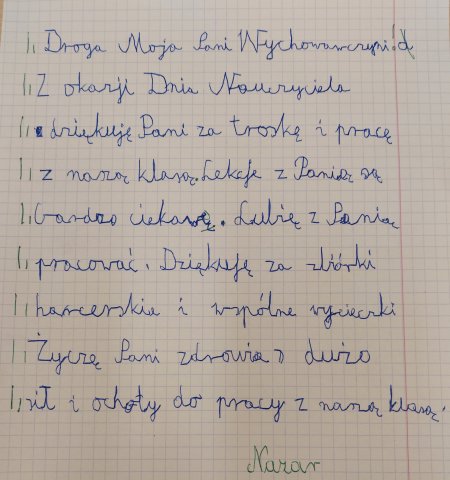 Droga Moja Pani Wychowawczyni!
Z okazji Dnia Nauczyciela
dziękuję Pani za troskę i pracę
z naszą klasą. Lekcje z Panią są
bardzo ciekawe. Lubię z Panią
pracować. Dziękuję za zbiórki
harcerskie i wspólne wycieczki
Życzę Pani zdrowia, dużo
sił i ochoty do pracy z naszą klasą.
Nazar